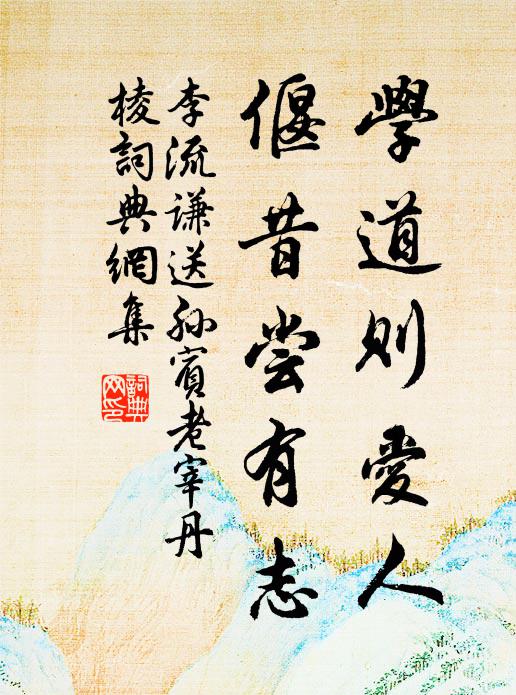 學道則愛人
偃昔嘗有志
李流謙送孫賓老宰丹
棱詞典網集
詞典
网印